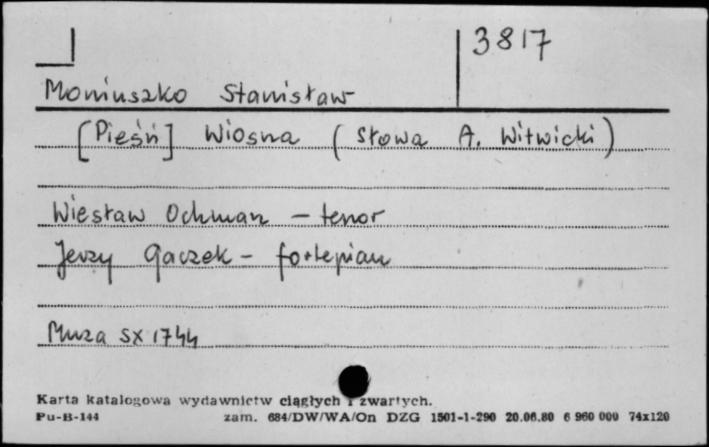 3817
Moniuszko Stanisław
[Pieśń] Wiosna (słowa A. Witwicki)
Wiesław Ochman - tenor
Jerzy Gaczek - fortepian
Muza SX 1744
Karta katalogowa wydawnictw ciągłych i zwartych.
Pu-B-144 zam. 684/DW/WA/On DZG 1501-1-290 20.06.80 6 960 000 74x120